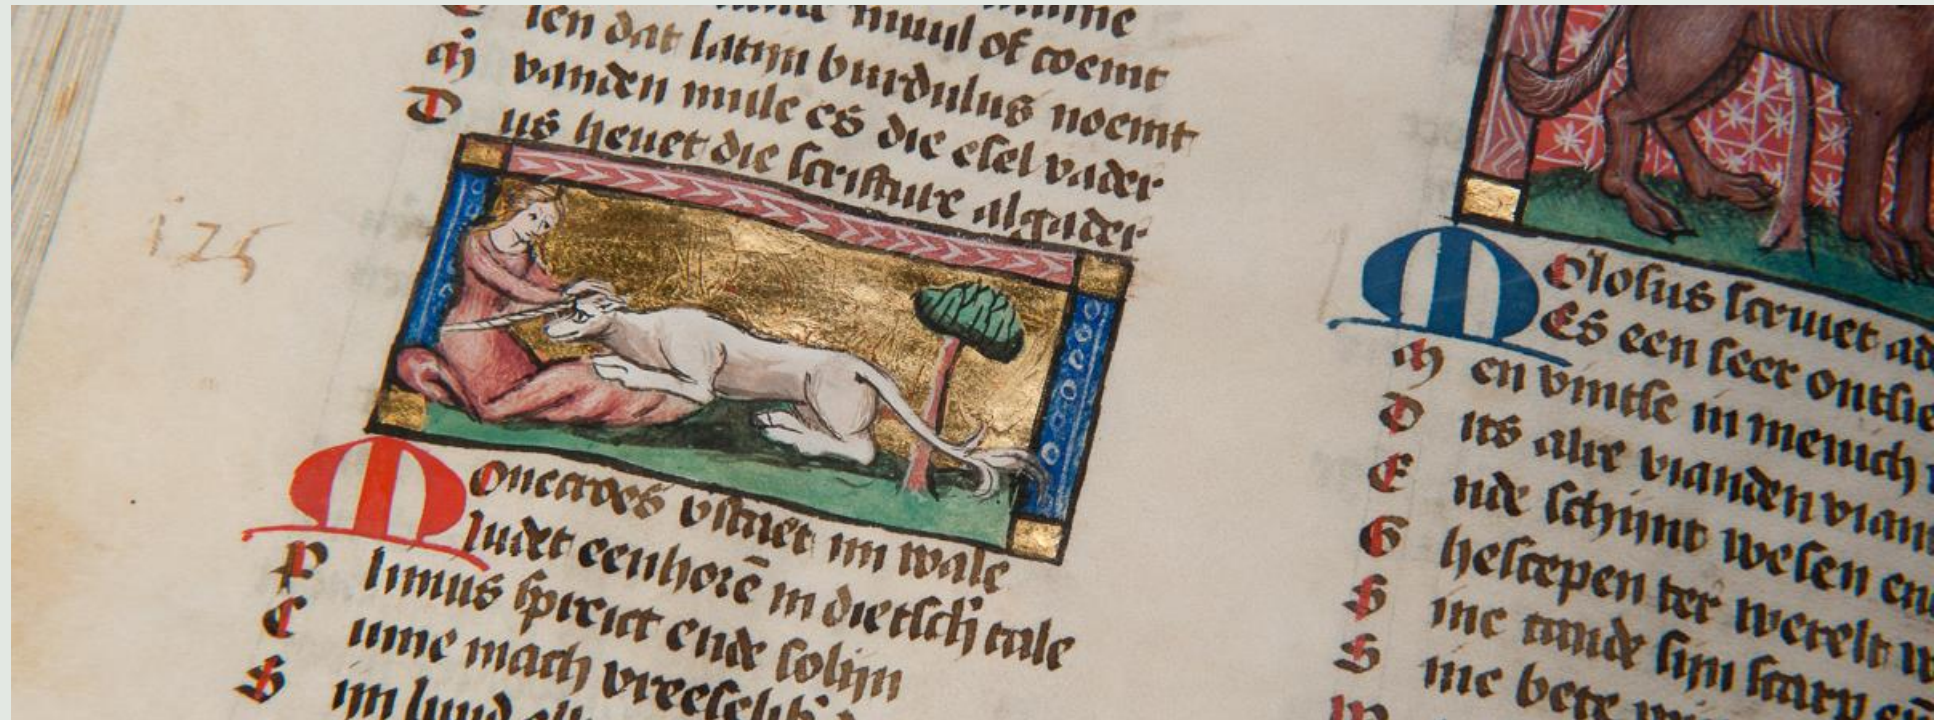 muul of coemt
ien dat latijn burdulus noemt
vanden mule es die esel vader
Dus heuet die scrifture algader
125
Monecros vstaet mi wale
ludet eenhorē in dietsch tale
Plinius spreict ende solijn
Cume mach vreeselik
Sijn luud
Molosus scriuet
Es een seer ontsie
Men vintse in menich
Dits alre vianden vian
Ende schijnt wesen
Ghescepen ter werelt
Sine tande sijn scarp eñ
Sine bete